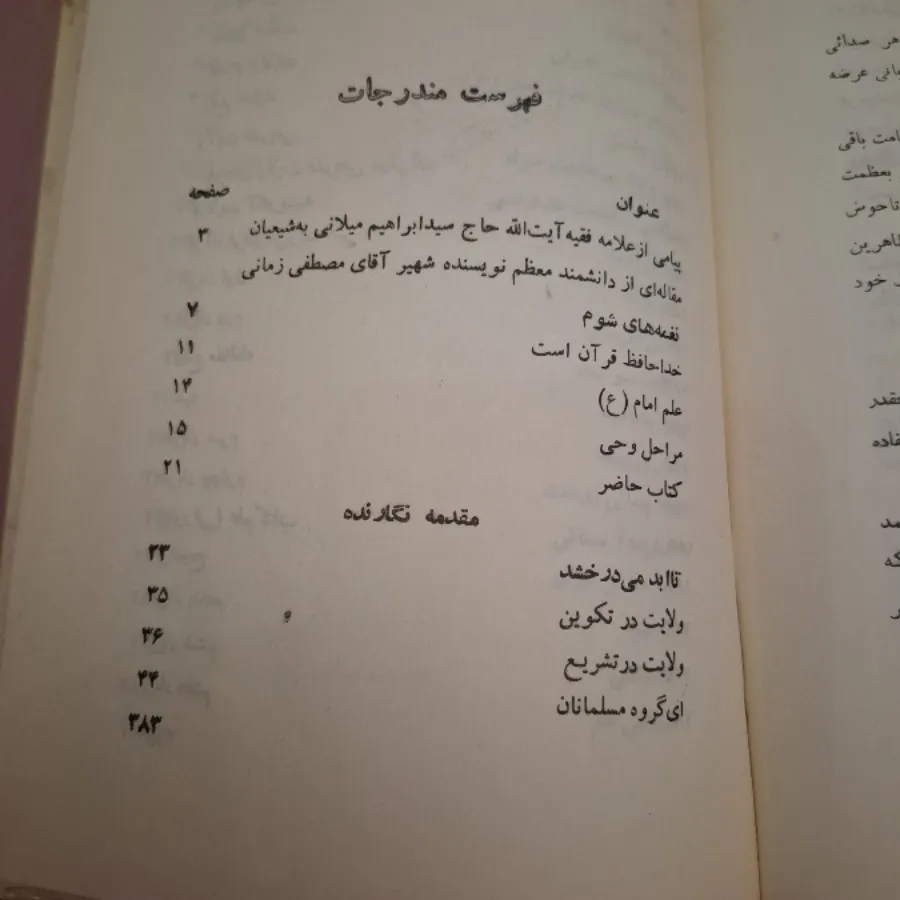 فهرست مندرجات
عنوان صفحه
پیامی از علامه فقیه آیت‌الله حاج سیدابراهیم میلانی به شیعیان ۳
مقاله‌ای از دانشمند معظم نویسنده شهیر آقای مصطفی زمانی
نغمه‌های شوم ۷
خداحافظ قرآن است ۱۱
علم امام (ع) ۱۴
مراحل وحی ۱۵
کتاب حاضر ۲۱
مقدمه نگارنده
تاابد می‌درخشد ۲۳
ولایت در تکوین ۳۵
ولایت در تشریع ۳۶
ای‌گروه مسلمانان ۴۴
۳۸۳
هر صدائی
عرضه
باقی
بعظمت
خود